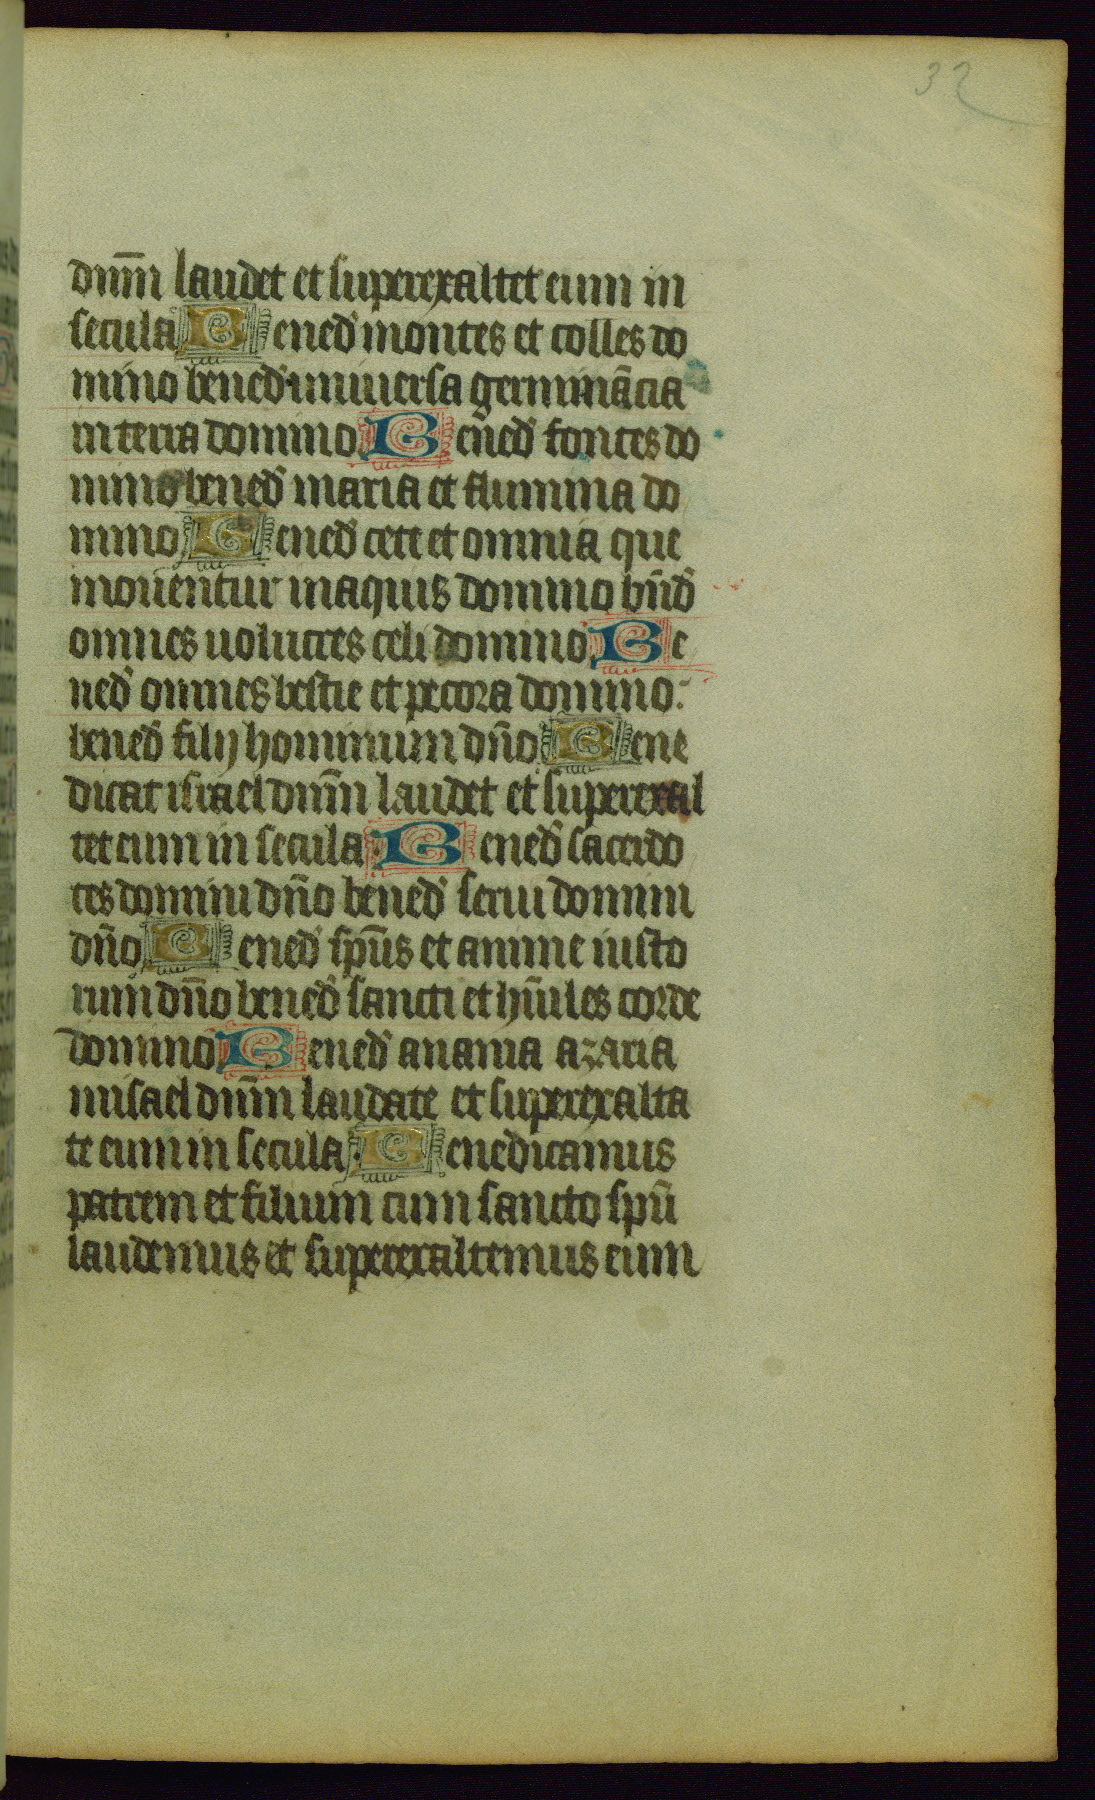 32
dnm̄ laudet et superexaltet eum in
secula Bened̉ montes et colles do
mino bened̉ uniuersa germinācia
in terra domino Bened̉ fontes do
mino bened̉ maria et flumina do
mino Bened̉ cete et omnia que
mouentur in aquis domino bn̄d̉
omnes uolucres celi domino Be
ned̉ omnes bestie et pecora domino:
bened̉ filij hominum dn̄o Bene
dicat israel dnm̄ laudet et superexal
tet eum in secula Bened̉ sacerdo
tes domini dn̄o bened̉ serui domini
dn̄o Bened̉ sp̄us et anime iusto
rum dn̄o bened̉ sancti et hūiles corde
domino Bened̉ anania azaria
misael dnm̄ laudate et superexalta
te eum in secula. Benedicamus
patrem et filium cum sancto spū
laudemus et superexaltemus eum